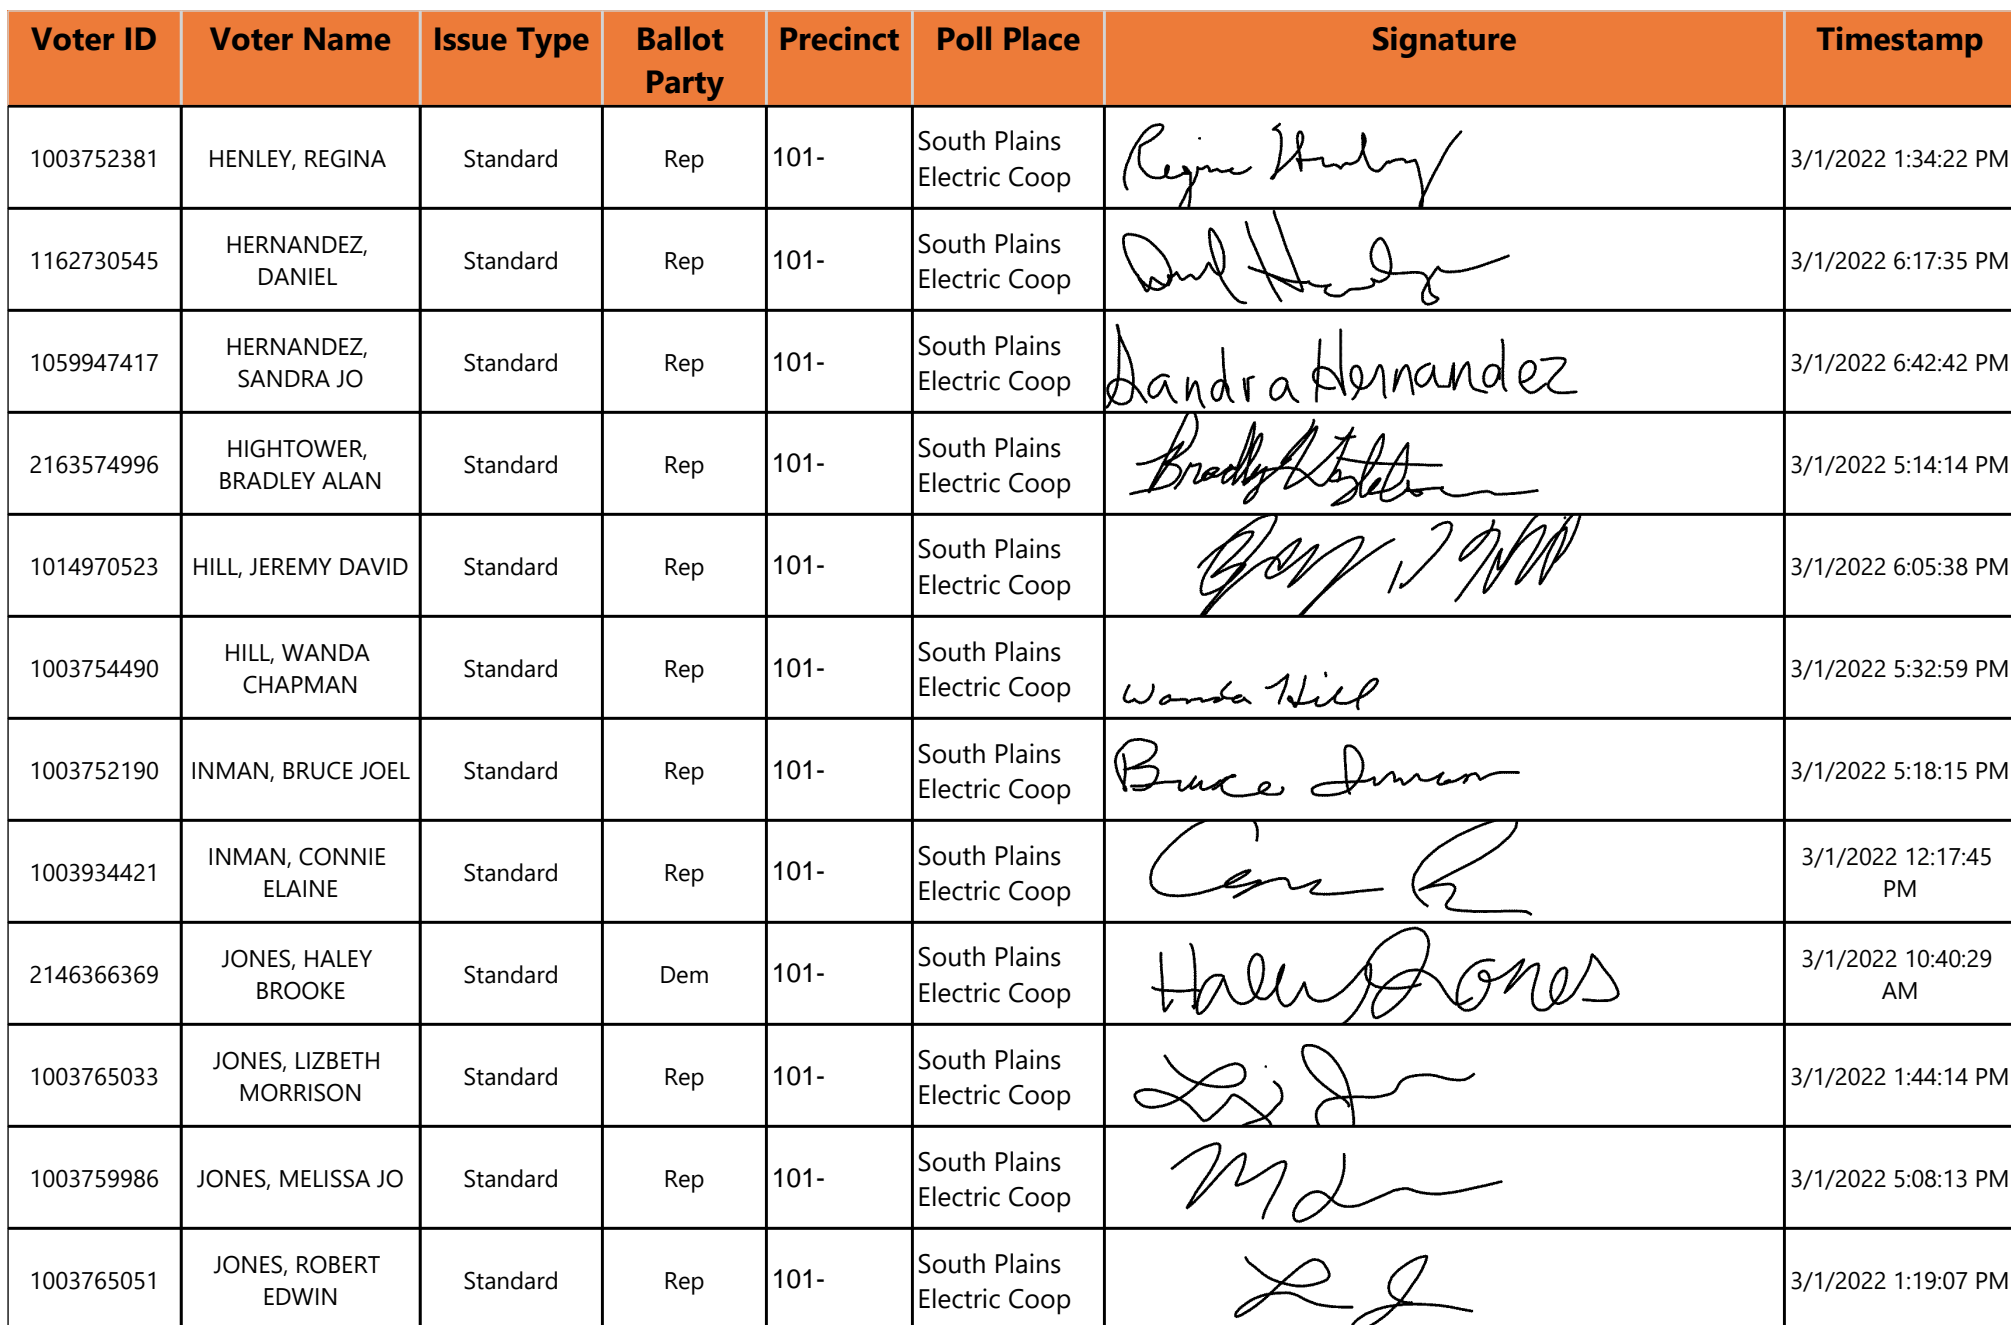 Voter ID Voter Name Issue Type Ballot Party Precinct Poll Place Signature Timestamp
1003752381 HENLEY, REGINA Standard Rep 101- South Plains Electric Coop Regina Henley 3/1/2022 1:34:22 PM
1162730545 HERNANDEZ, DANIEL Standard Rep 101- South Plains Electric Coop 3/1/2022 6:17:35 PM
1059947417 HERNANDEZ, SANDRA JO Standard Rep 101- South Plains Electric Coop Sandra Hernandez 3/1/2022 6:42:42 PM
2163574996 HIGHTOWER, BRADLEY ALAN Standard Rep 101- South Plains Electric Coop 3/1/2022 5:14:14 PM
1014970523 HILL, JEREMY DAVID Standard Rep 101- South Plains Electric Coop 3/1/2022 6:05:38 PM
1003754490 HILL, WANDA CHAPMAN Standard Rep 101- South Plains Electric Coop Wanda Hill 3/1/2022 5:32:59 PM
1003752190 INMAN, BRUCE JOEL Standard Rep 101- South Plains Electric Coop Bruce Inman 3/1/2022 5:18:15 PM
1003934421 INMAN, CONNIE ELAINE Standard Rep 101- South Plains Electric Coop 3/1/2022 12:17:45 PM
2146366369 JONES, HALEY BROOKE Standard Dem 101- South Plains Electric Coop Haley Jones 3/1/2022 10:40:29 AM
1003765033 JONES, LIZBETH MORRISON Standard Rep 101- South Plains Electric Coop 3/1/2022 1:44:14 PM
1003759986 JONES, MELISSA JO Standard Rep 101- South Plains Electric Coop 3/1/2022 5:08:13 PM
1003765051 JONES, ROBERT EDWIN Standard Rep 101- South Plains Electric Coop 3/1/2022 1:19:07 PM